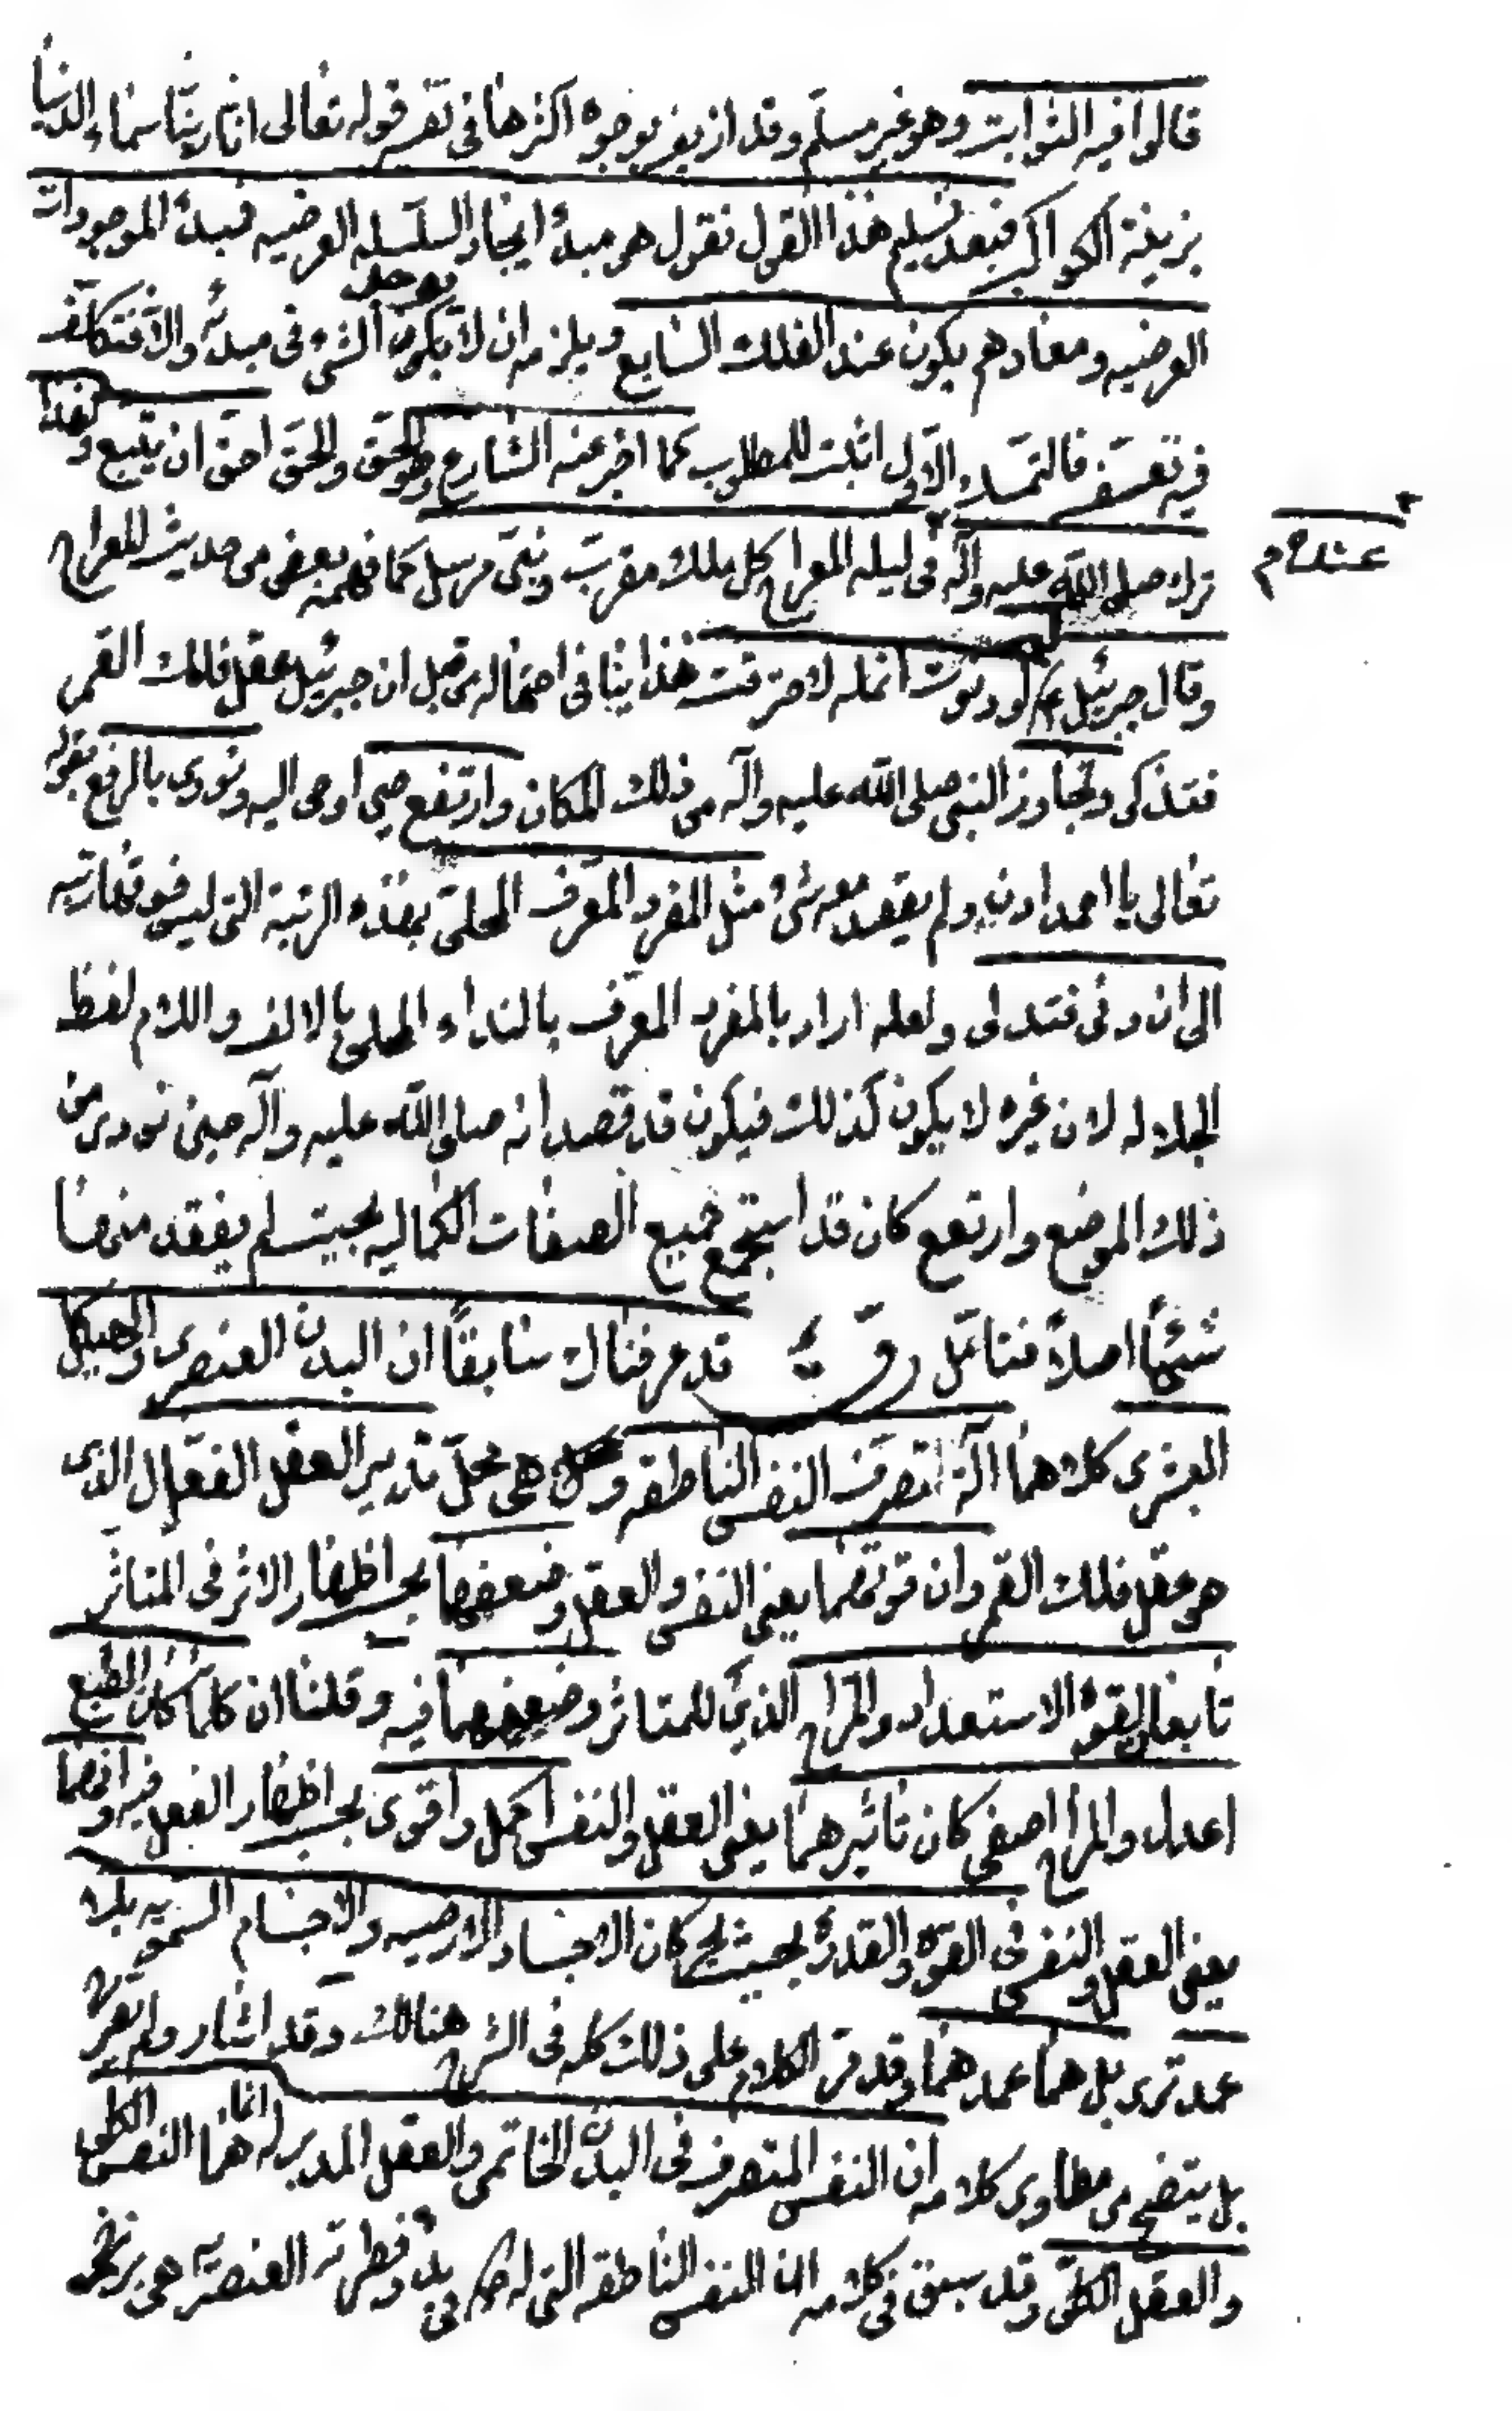 قالوا فيه الثوابت وهو غير مسلم وقد ازيف بوجوه اكثرها فى تفسير قوله تعالى انا زينا سماء الدنيا
بزينة الكواكب فبعد تسليم هذا القول نقول هو مبدأ ايجاد السلسله العرضيه فمبدأ الموجودات
العرضيه ومعادهم يكون عند الفلك السابع ويلزمه ان لا يكون يوجد الشئ فى مبدئه والا فتكلف
فيه تعسف فالتمسك الاول اثبت للمطلوب كما اخبر عنه الشارع وهو الحق والحق احق ان يتبع ولهذا
ترك صلى الله عليه وآله فى ليله المعراج كل ملك مقرب ونبى مرسل كما فهمه بعض من حديث المعراج
عنده م
وقال جبرئيل ع لو دنوت انمله لاحترقت هذا ينافى احتماله من قبل ان جبرئيل عقل فلك القمر
فتذكر وتجاوز النبى صلى الله عليه وآله من ذلك المكان وارتفع حين اوحى اليه ونودى بالرفع بقوله
تعالى يا احمد ادن ولم يفقد معه شئ مثل المفرد المعرف المحلى بهذه الرتبة التى ليس فوقها رتبه
الى ان دنى فتدلى ولعله اراد بالمفرد المعرف بالنداء المحلى بالالف واللام لفظ
الجلاله لان غيره لا يكون كذلك فيكون قد قصد انه صلى الله عليه وآله حين نودى من
ذلك الموضع وارتفع كان قد استجمع جميع الصفات الكماليه بحيث لم يفقد منها
شيئا اصلا فتامل قد عرفناك سابقا ان البدن العنصرى والهيكل
البشرى كلاهما آلة لتصرف النفس الناطقه وهى محل تدبير العقل الفعال الذى
هو عقل فلك القمر وان قوتهما يعنى النفس والعقل وضعفهما بحسب اظهار الاثر فى المتاثر
تابعا لقوة الاستعداد والمزاج الذى للمتاثر وضعفهما فيه وقلنا ان كلما كان الطبع
اعدل والمزاج اصفى كان تاثيرهما يعنى العقل والنفس اكمل واقوى بحسب اظهار الفعل فيه وانهما
يعنى العقل والنفس فى القوة والقدرة بحيث يحركان الاجساد الارضيه والاجسام السمويه بلا
عمد ترى بل هما عمدهما وقد مر الكلام على ذلك كله فى الشرح هنالك وقد اشار ولم يصرح
بل يتضح من مطاوى كلامه ان النفس المتصرف فى البدن الخاتمى والعقل المدبر له انما هما النفس الكلى
والعقل الكلى وقد سبق فى كلامه ان النفس الناطقه التى له ص فى بدو فطرته العنصريه هى برزخ